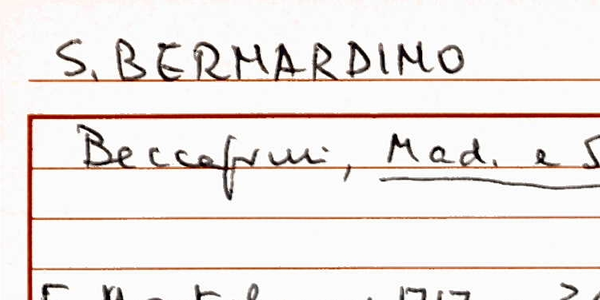 S. BERNARDINO
Beccafumi, Mad. e S
1717